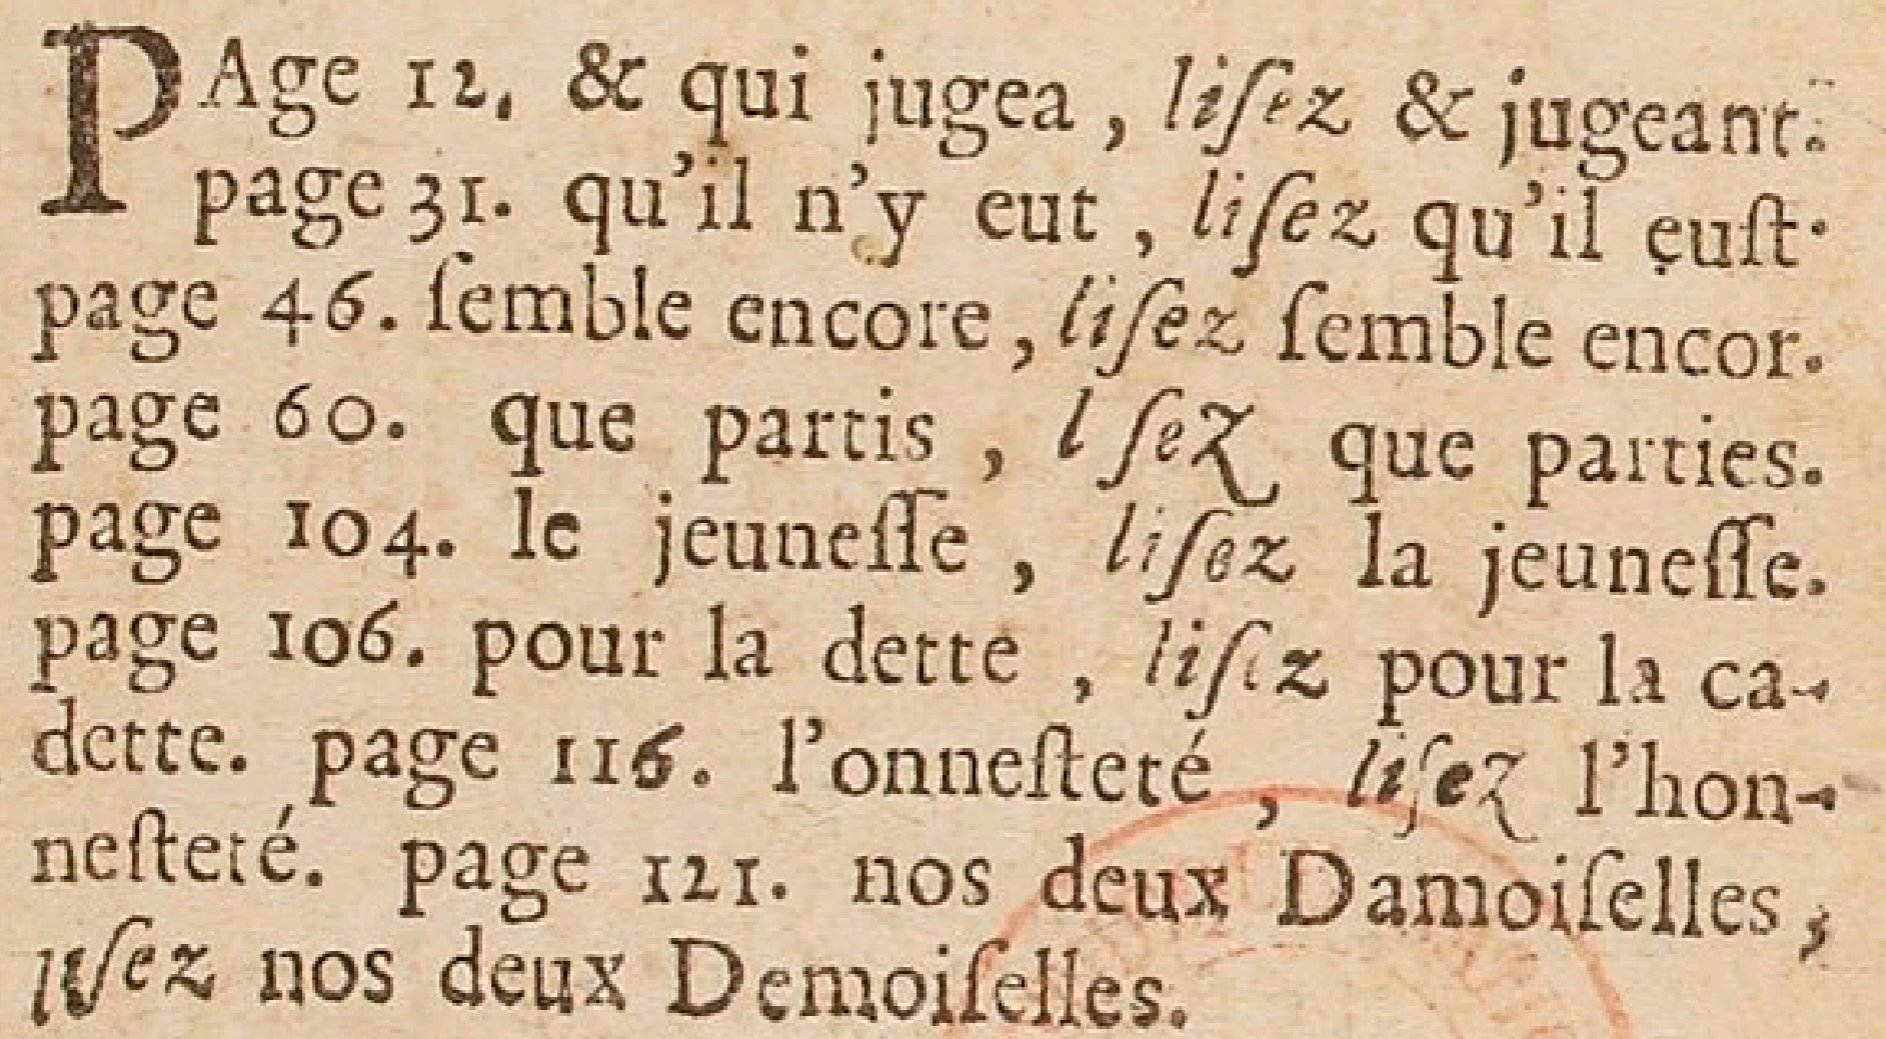 PAge 12. & qui jugea, liſez & jugeant.
page 31. qu'il n'y eut, liſez qu'il euſt.
page 46. ſemble encore, liſez ſemble encor.
page 60. que partis, l ſez que parties.
page 104. le jeuneſſe, liſez la jeuneſſe.
page 106. pour la dette, liſez pour la ca-
dette. page 116. l'onneſteté, liſez l'hon-
neſteté. page 121. nos deux Damoiſelles,
liſez nos deux Demoiſelles.